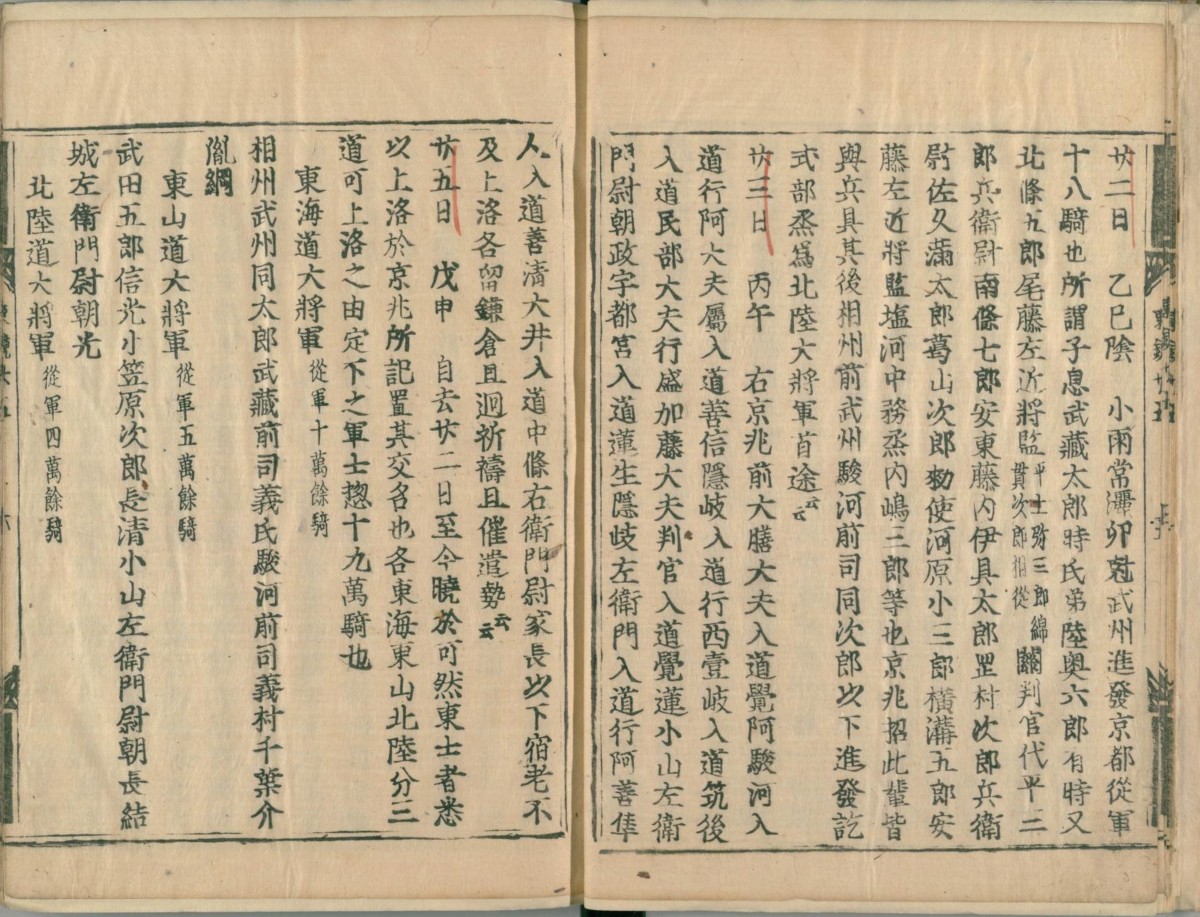 廿二日　乙巳陰　小雨常灑卯尅武州進發京都從軍
十八騎也所謂子息武藏太郎時氏弟陸奥六郎有時又
北條五郎尾藤左近將監平士弥三郎綿貫次郎相從関判官代平三
郎兵衛尉南條七郎安東藤内伊具太郎罡村次郎兵衛
尉佐久滿太郎葛山次郎勑使河原小三郎横溝五郎安
藤左近將監塩河中務烝内嶋三郎等也京兆招此輩皆
與兵具其後相州前武州駿河前司同次郎以下進發訖
式部烝爲北陸大將軍首途云云
廿三日　丙午　右京兆前大膳大夫入道覺阿駿河入
道行阿大夫屬入道善信隱岐入道行西壹岐入道筑後
入道民部大夫行盛加藤大夫判官入道覺蓮小山左衛
門尉朝政宇都宮入道蓮生隱岐左衛門入道行阿善隼
人入道善清大井入道中條右衛門尉家長以下宿老不
及上洛各留鎌倉且迴祈禱且催遣勢云云
廿五日　戊申　自去廿二日至今曉於可然東士者悉
以上洛於京兆所記置其交名也各東海東山北陸分三
道可上洛之由定下之軍士惣十九萬騎也
東海道大將軍從軍十萬餘騎
相州武州同太郎武藏前司義氏駿河前司義村千葉介
胤綱
東山道大將軍從軍五萬餘騎
武田五郎信光小笠原次郎長清小山左衛門尉朝長結
城左衛門尉朝光
北陸道大將軍從軍四萬餘騎